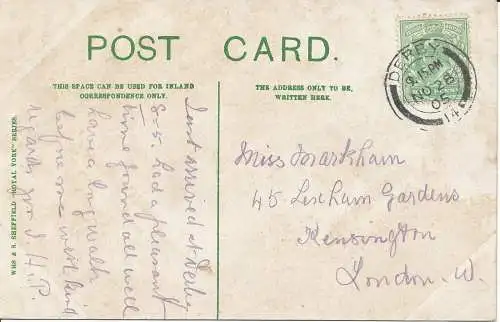 POST CARD.
THIS SPACE CAN BE USED FOR INLAND
CORRESPONDENCE ONLY.
THE ADDRESS ONLY TO BE
WRITTEN HERE.
Just arrived at Derby
had a pleasant
time found all well
have a long walk
before me
regards
Miss Markham
45 Lexham Gardens
Kensington
London. W.
DERBY
9 15 PM
NO 8
05
14
W&S. SHEFFIELD "ROYAL YORK" SERIES.